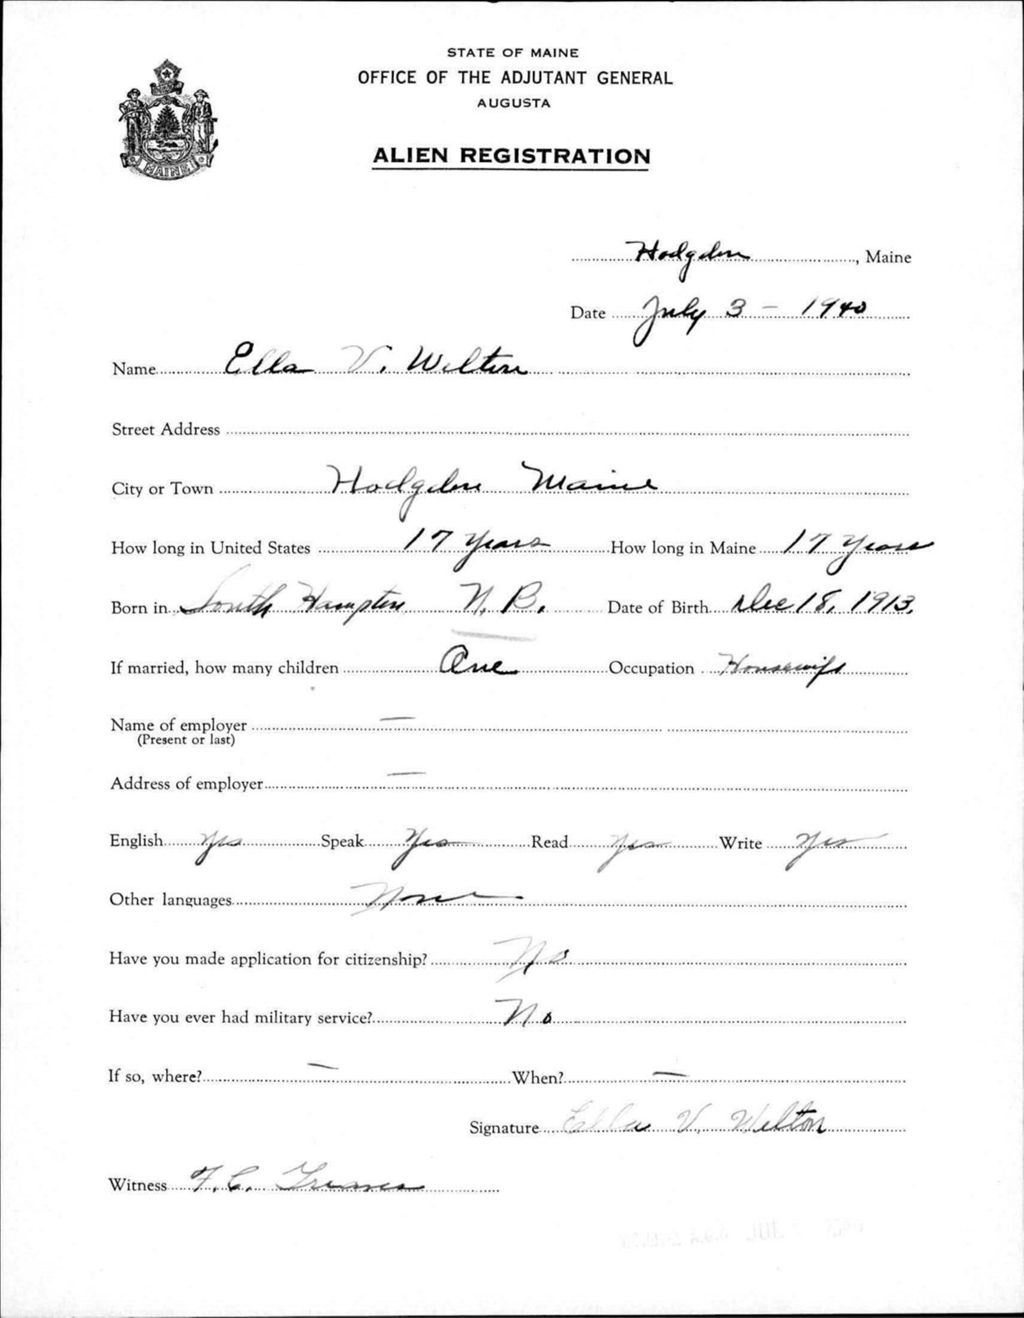 STATE OF MAINE
OFFICE OF THE ADJUTANT GENERAL
AUGUSTA
MAINE
ALIEN REGISTRATION
Hodgdon, Maine
Date July 3 - 1940
Name Ella V. Welton
Street Address
City or Town Hodgdon Maine
How long in United States 17 Years How long in Maine 17 Years
Born in South Hampton N. B. Date of Birth Dec 18, 1913.
If married, how many children One Occupation Housewife
Name of employer —
(Present or last)
Address of employer —
English Yes Speak Yes Read Yes Write Yes
Other languages None
Have you made application for citizenship? No
Have you ever had military service? No
If so, where? — When? —
Signature Ella V. Welton
Witness F. C.